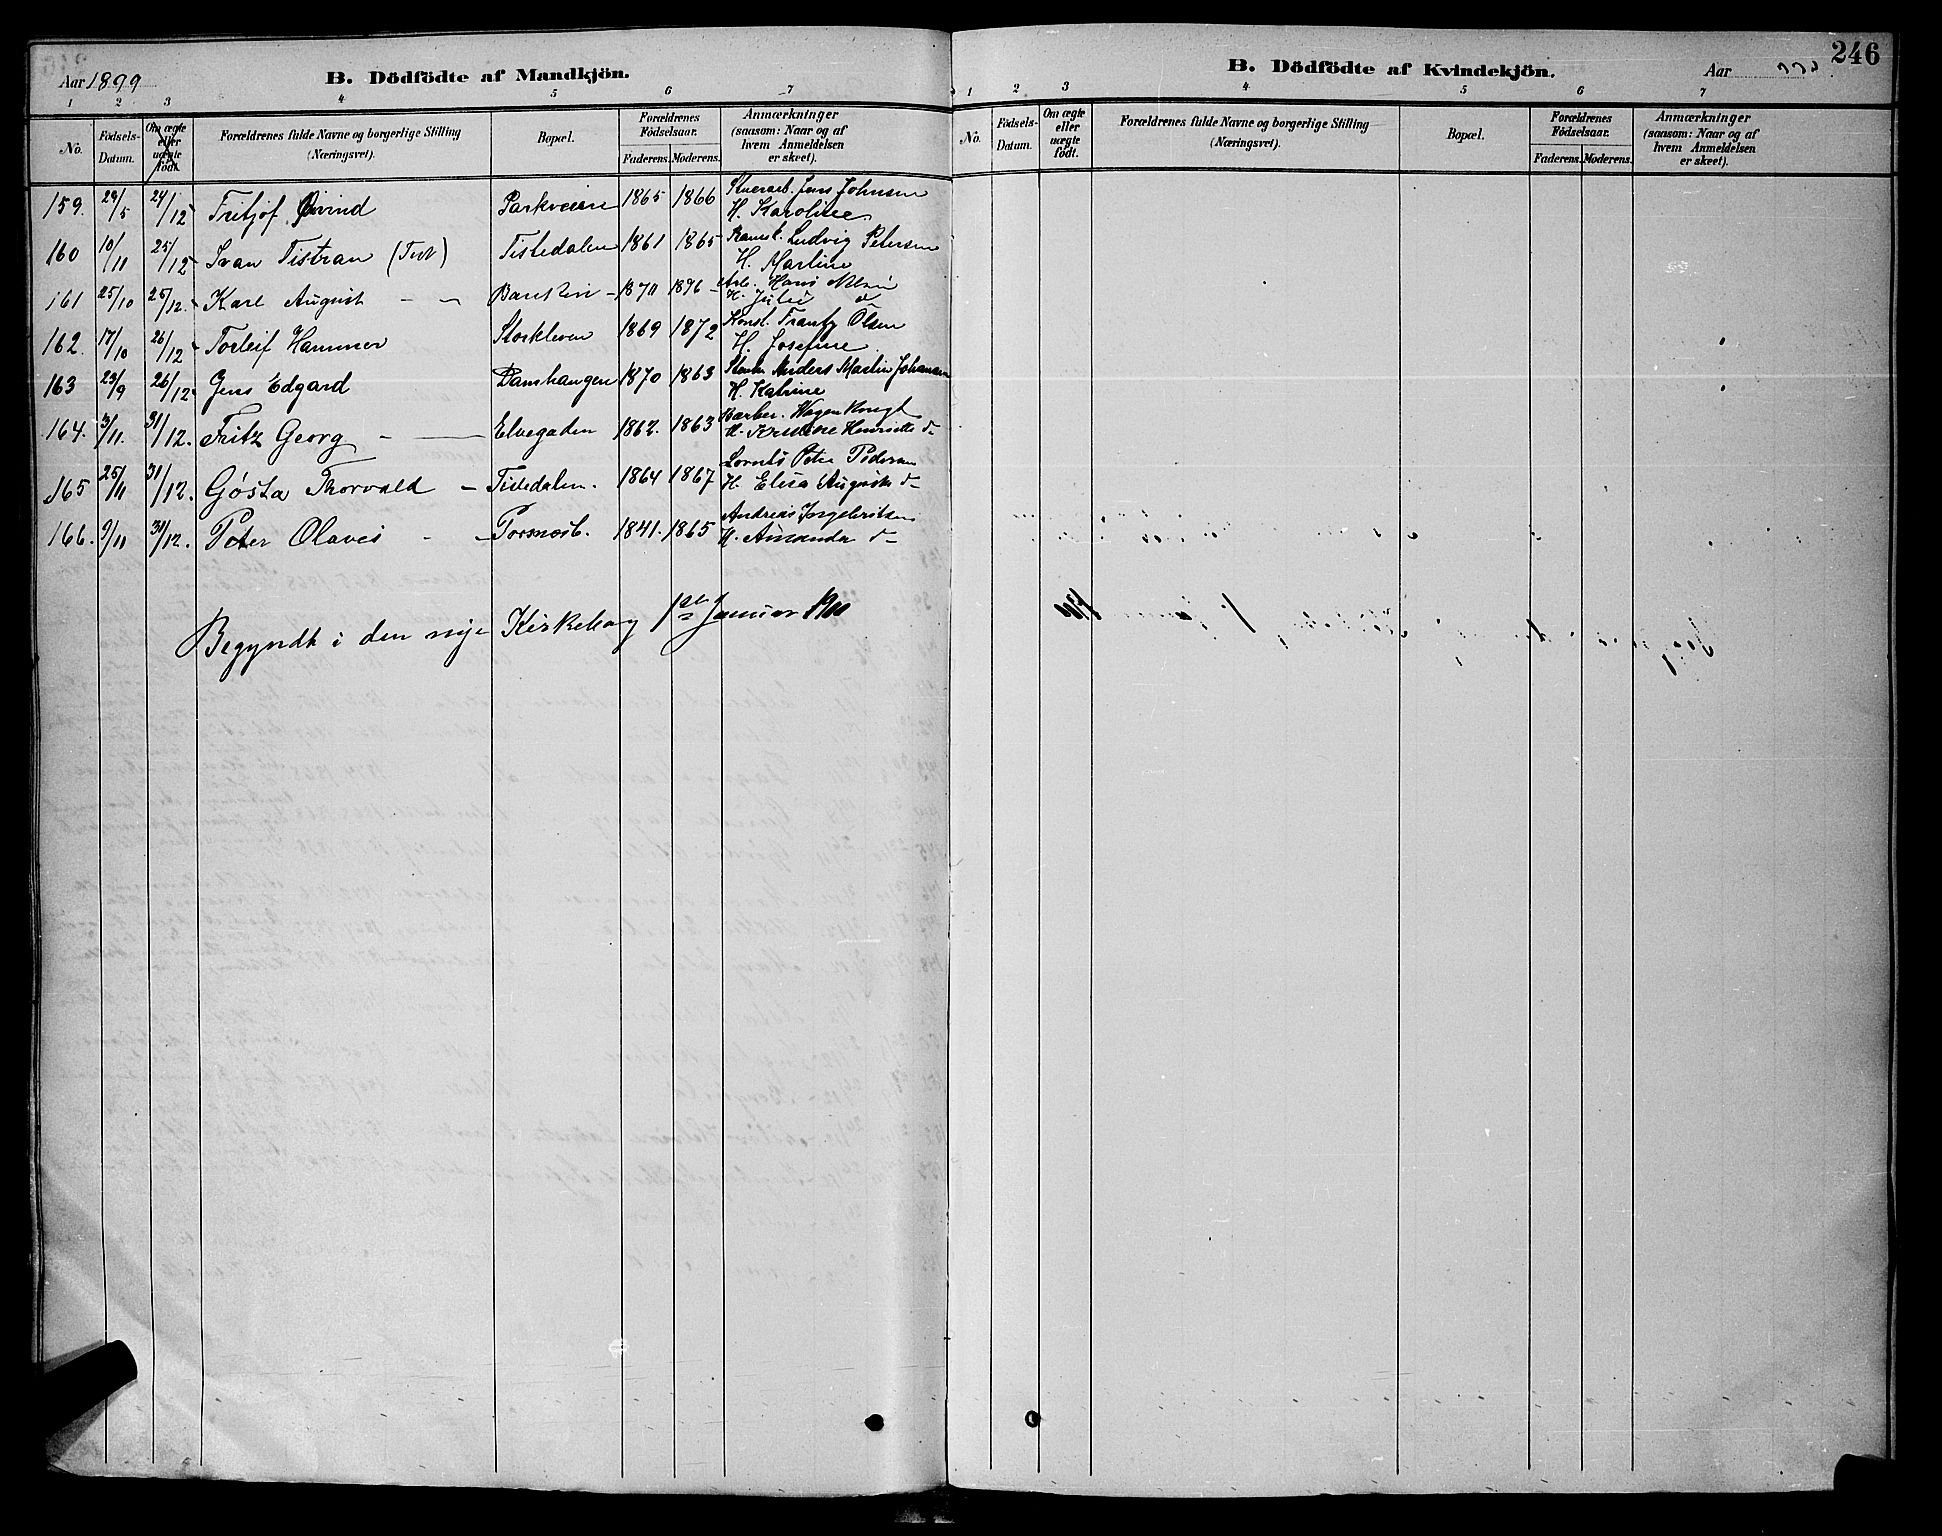 246
Aar 1899 B. Dödfödte af Mandkjön.
1 2 3 4 5 6 7
No. Födsels-Datum. Om ægte eller uægte født. Forældrenes fulde Navne og borgerlige Stilling (Næringsvei). Bopæl. Forældrenes Födselsaar. Faderens. Moderens. Anmærkninger (saasom: Naar og af hvem Anmeldelsen er skeet).
159. 29/5 24/12 Fritjof Øivind Parkveien 1865 1866 Jens Johnsen
H. Karoline
160 10/11 25/12 Ivan Tistran Tistedalen 1861 1865 Ludvig Petersen
H. Martine
161 25/10 25/12. Karl August Hans Nilsen
H. Julie do
162. 17/10 26/12 Torleif Hammer Storkleven 1869 1872 Konst. Frantz Olsen
H. Josefine
163 23/9 26/12 Jens Edgard Damhaugen 1870 1863 Anders Martin Johansen
H. Katrine
164. 3/11. 31/12. Fritz Georg Elvegaden 1862. 1863 Barber.
H. Kristine Henriette do
165 25/11 31/12. Gøsta Thorvald Tistedalen. 1864 1867 Lornts Petr Pedersen
H. Elisa Auguste do
166. 9/11 31/12. Peter Olaves 1841. 1865 Andreas Ingebritsen
H. Amanda do
Begyndt i den nye Kirkebog 1ste Januar 1900
B. Dödfödte af Kvindekjön. Aar
1 2 3 4 5 6 7
No. Födsels-Datum. Om ægte eller uægte födt. Forældrenes fulde Navne og borgerlige Stilling (Næringsvei). Bopæl. Forældrenes Födselsaar. Faderens. Moderens. Anmærkninger (saasom: Naar og af hvem Anmeldelsen er skeet).